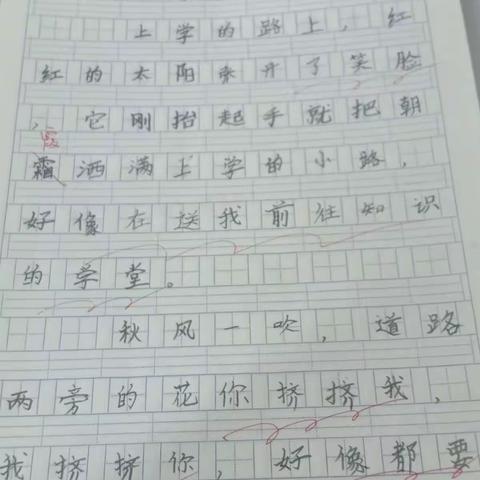 上学的路上，红
红的太阳来开了笑脸
，它刚抬起手就把朝
霞
霜洒满上学的小路，
好像在送我前往知识
的学堂。
秋风一吹，道路
两旁的花你挤挤我，
我挤挤你，好像都要